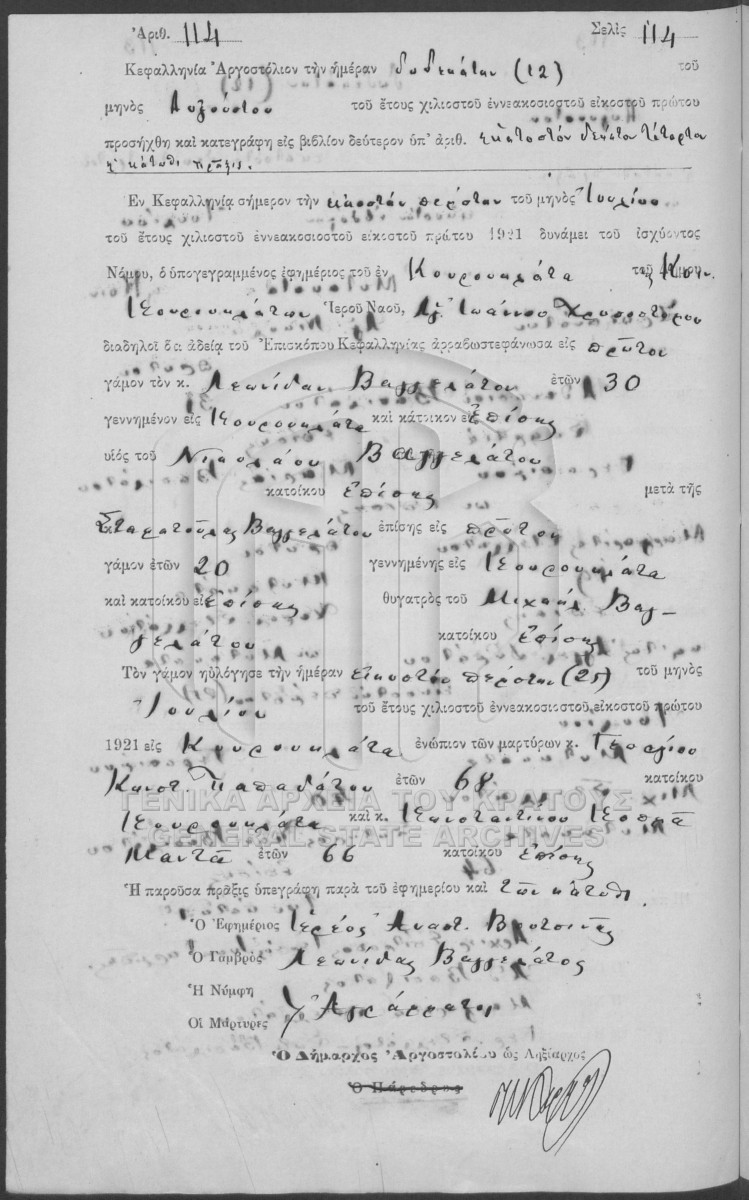 Ἀριθ. 114 Σελὶς 114
Κεφαλληνία Ἀργοστόλιον τὴν ἡμέραν δωδεκάτην (12) τοῦ
μηνὸς Αὐγούστου τοῦ ἔτους χιλιοστοῦ ἐννεακοσιοστοῦ εἰκοστοῦ πρώτου
προσήχθη καὶ κατεγράφη εἰς βιβλίον δεύτερον ὑπ' ἀριθ. ἑκατοστὸν δέκατον τέταρτον
ἡ κάτωθι πρᾶξις.
Ἐν Κεφαλληνίᾳ σήμερον τὴν εἰκοστὴν πέμπτην τοῦ μηνὸς Ἰουλίου
τοῦ ἔτους χιλιοστοῦ ἐννεακοσιοστοῦ εἰκοστοῦ πρώτου 1921 δυνάμει τοῦ ἰσχύοντος
Νόμου, ὁ ὑπογεγραμμένος ἐφημέριος τοῦ ἐν Κουρουκλάτα τῆς Κοιν.
Κουρουκλάτων Ἱεροῦ Ναοῦ, Ἁγ. Ἰωάννου Χρυσοστόμου
διαδηλοῖ ὅτι ἀδείᾳ τοῦ Ἐπισκόπου Κεφαλληνίας ἀρραβωστεφάνωσα εἰς πρῶτον
γάμον τὸν κ. Λεωνίδαν Βαγγελάτον ἐτῶν 30
γεννημένον εἰς Κουρουκλάτα καὶ κάτοικον εἰς Ἐπίσης
υἱὸς τοῦ Νικολάου Βαγγελάτου
κατοίκου Ἐπίσης μετὰ τῆς
Σταματούλας Βαγγελάτου ἐπίσης εἰς πρῶτον
γάμον ἐτῶν 20 γεννημένης εἰς Κουρουκλάτα
καὶ κατοίκου εἰς Ἐπίσης θυγατρὸς τοῦ Μιχαὴλ Βαγ-
γελάτου κατοίκου Ἐπίσης
Τὸν γάμον ηὐλόγησε τὴν ἡμέραν εἰκοστὴν πέμπτην (25) τοῦ μηνὸς
Ἰουλίου τοῦ ἔτους χιλιοστοῦ ἐννεακοσιοστοῦ εἰκοστοῦ πρώτου
1921 εἰς Κουρουκλάτα ἐνώπιον τῶν μαρτύρων κ. Γερασίμου
Κωνστ. Παπαδάτου ἐτῶν 68 κατοίκου
ΓΕΝΙΚΑ ΑΡΧΕΙΑ ΤΟΥ ΚΡΑΤΟΥΣ
Κουρουκλάτα καὶ κ. Κωνσταντίνου Κοσμᾶ
GENERAL STATE ARCHIVES
Μαντᾶ ἐτῶν 66 κατοίκου Ἐπίσης
Ἡ παροῦσα πρᾶξις ὑπεγράφη παρὰ τοῦ ἐφημερίου καὶ τῶν κάτωθι
Ὁ Ἐφημέριος Ἱερεὺς Ἀναστ. Βουτσινᾶς
Ὁ Γαμβρὸς Λεωνίδας Βαγγελάτος
Ἡ Νύμφη
Οἱ Μάρτυρες Ἀγράμματοι
Ὁ Δήμαρχος Ἀργοστολίου ὡς Ληξίαρχος
Ὁ Πάρεδρος